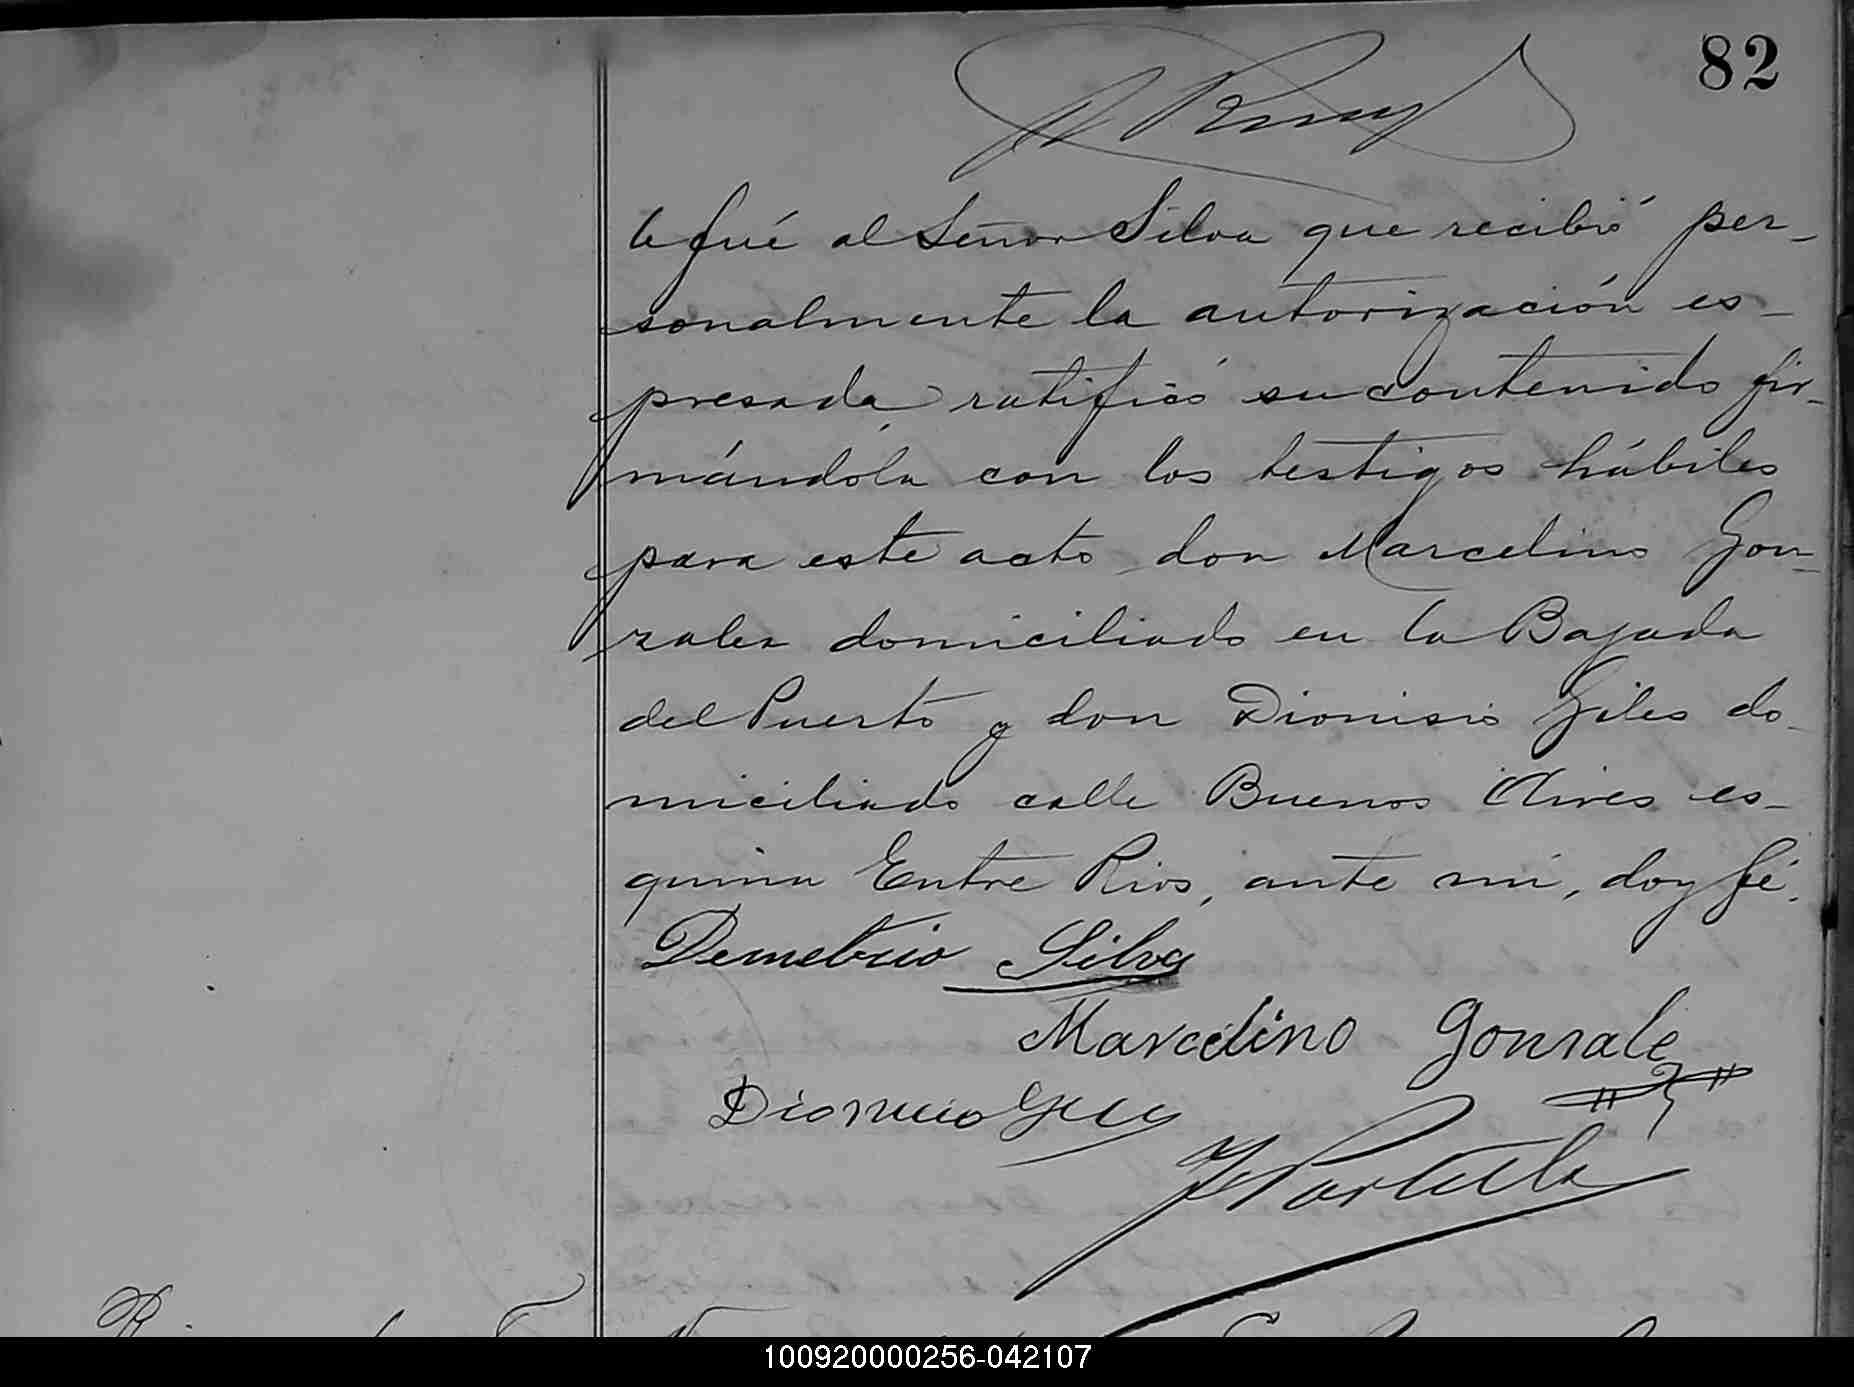 82
le fué al Señor Silva que recibió per-
sonalmente la autorización es-
presada, ratificó su contenido fir-
mándola con los testigos hábiles
para este acto don Marcelino Gon-
zalez domiciliado en la Bajada
del Puerto y don Dionisio Giles do-
miciliado calle Buenos Aires es-
quina Entre Rios, ante mí, doy fé.
Demetrio Silva
Marcelino Gonzalez
Dionicio Giles
100920000256-042107